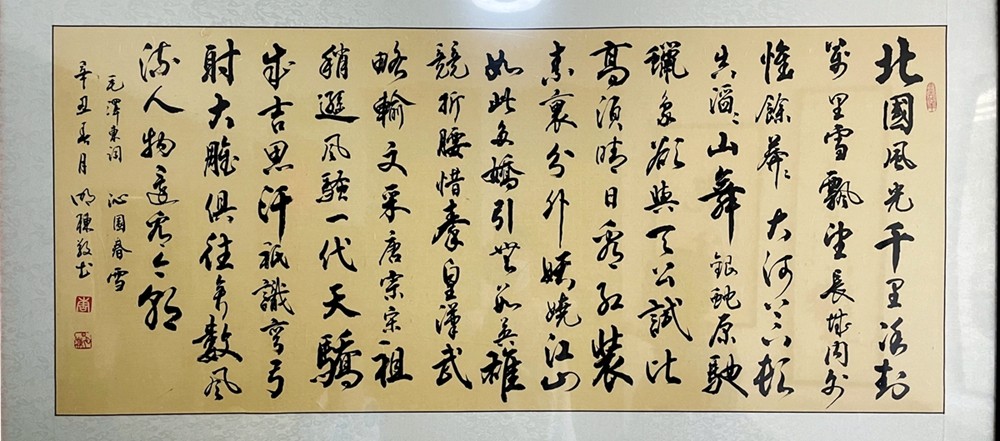 北國風光千里冰封
萬里雪飄望長城内外
惟餘莽莽大河上下頓
失滔滔山舞銀蛇原馳
蠟象欲與天公試比
高須晴日看紅裝
素裹分外嬈江山
如此多嬌引無數英雄
競折腰惜秦皇漢武
略輸文采唐宗宋祖
稍遜風騷一代天驕
成吉思汗祇識彎弓
射大雕俱往矣數風
流人物還看今朝
毛澤東詞 沁園春雪
辛丑春月